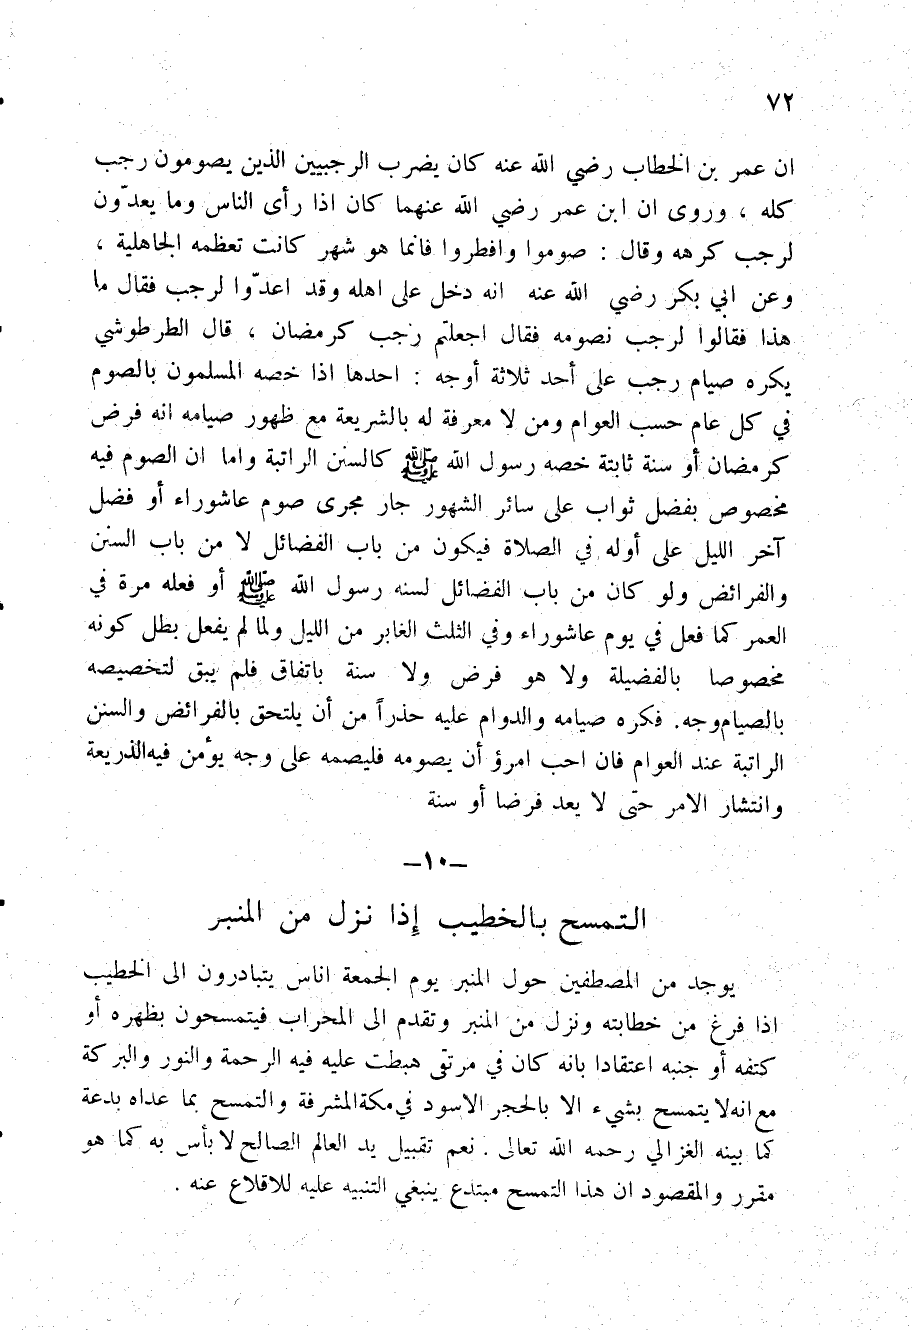 ٧٢
ان عمر بن الخطاب رضي الله عنه كان يضرب الرجبيين الذين يصومون رجب
كله ، وروى ان ابن عمر رضي الله عنهما كان اذا رأى الناس وما يعدّون
لرجب كرهه وقال : صوموا وافطروا فانما هو شهر كانت تعظمه الجاهلية ،
وعن ابي بكر رضي الله عنه انه دخل على اهله وقد اعدّوا لرجب فقال ما
هذا فقالوا لرجب نصومه فقال اجعلتم رجب كرمضان ، قال الطرطوشي
يكره صيام رجب على أحد ثلاثة أوجه : احدها اذا خصه المسلمون بالصوم
في كل عام حسب العوام ومن لا معرفة له بالشريعة مع ظهور صيامه انه فرض
كرمضان أو سنة ثابتة خصه رسول الله ﷺ كالسنن الراتبة واما ان الصوم فيه
مخصوص بفضل ثواب على سائر الشهور جار مجرى صوم عاشوراء أو فضل
آخر الليل على أوله في الصلاة فيكون من باب الفضائل لا من باب السنن
والفرائض ولو كان من باب الفضائل لسنه رسول الله ﷺ أو فعله مرة في
العمر كما فعل في يوم عاشوراء وفي الثلث الغابر من الليل ولما لم يفعل بطل كونه
مخصوصا بالفضيلة ولا هو فرض ولا سنة باتفاق فلم يبق لتخصيصه
بالصيام وجه. فكره صيامه والدوام عليه حذراً من أن يلتحق بالفرائض والسنن
الراتبة عند العوام فان احب امرؤ أن يصومه فليصمه على وجه يؤمن فيه الذريعة
وانتشار الامر حتى لا يعد فرضا أو سنة
—١٠—
التمسح بالخطيب إذا نزل من المنبر
يوجد من المصطفين حول المنبر يوم الجمعة اناس يتبادرون الى الخطيب
اذا فرغ من خطابته ونزل من المنبر وتقدم الى المحراب فيتمسحون بظهره أو
كتفه أو جنبه اعتقادا بانه كان في مرتقى هبطت عليه فيه الرحمة والنور والبركة
مع انه لا يتمسح بشيء الا بالحجر الاسود في مكة المشرفة والتمسح بما عداه بدعة
كما بينه الغزالي رحمه الله تعالى . نعم تقبيل يد العالم الصالح لا بأس به كما هو
مقرر والمقصود ان هذا التمسح مبتدع ينبغي التنبيه عليه للاقلاع عنه .